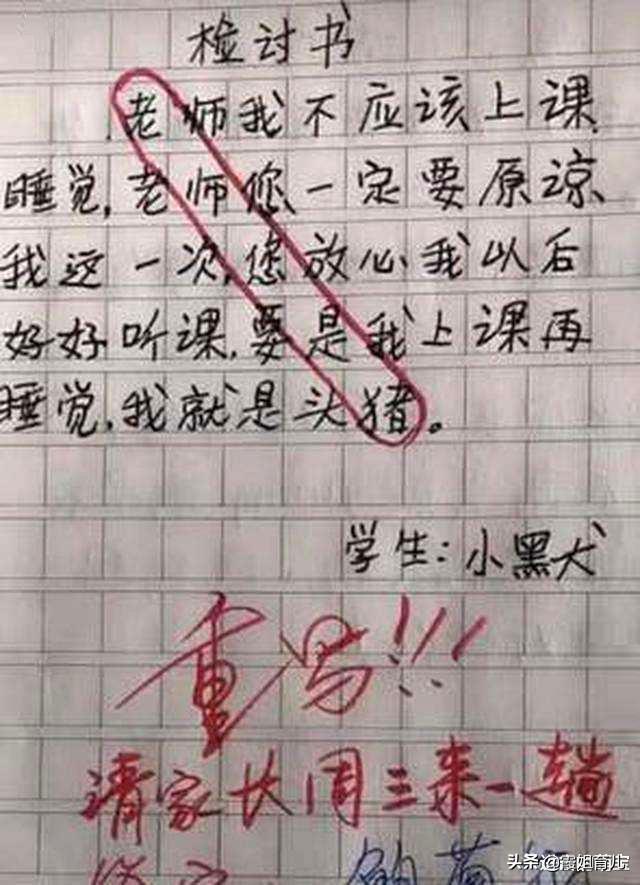 检讨书
老师我不应该上课
睡觉,老师您一定要原谅
我这一次,您放心我以后
好好听课,要是我上课再
睡觉,我就是头猪。
学生:小黑犬
重写!!!
请家长周三来一趟
头条@震姐育儿